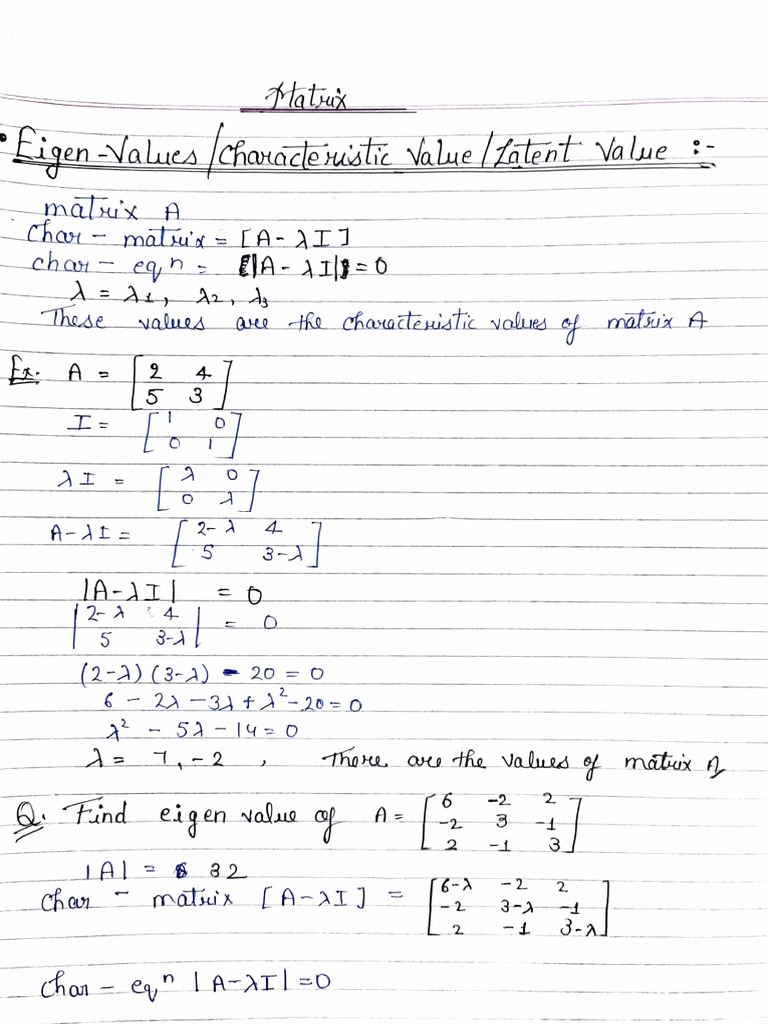 Matrix
• Eigen-Values/Characteristic Value/Latent Value :-
matrix A
Char - matrix = [A - λI]
char - eqⁿ = |A - λI| = 0
λ = λ1, λ2, λ3
These values are the characteristic values of matrix A
Ex. A = [2 4
5 3]
I = [1 0
0 1]
λI = [λ 0
0 λ]
A-λI = [2-λ 4
5 3-λ]
|A-λI| = 0
|2-λ 4
5 3-λ| = 0
(2-λ)(3-λ) - 20 = 0
6 - 2λ - 3λ + λ² - 20 = 0
λ² - 5λ - 14 = 0
λ = 7, -2 , There are the values of matrix A
Q. Find eigen value of A = [6 -2 2
-2 3 -1
2 -1 3]
|A| = 32
Char - matrix [A-λI] = [6-λ -2 2
-2 3-λ -1
2 -1 3-λ]
Char - eqⁿ |A-λI| = 0